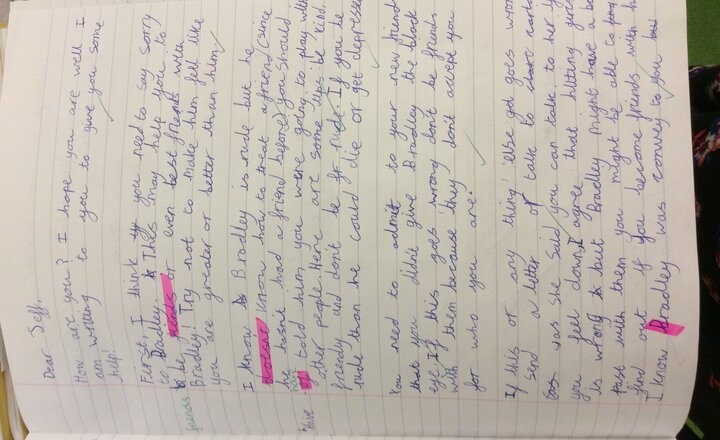 Dear Jeff,
How are you? I hope you are well I
am writing to you to give you some
help!
First, I think you need to say sorry
to Bradley. This may help you to
be or even best friends with
friends
Bradley! Try not to make him feel like
you are greater or better than him.
I know Bradley is rude but he
doesent know how to treat a friend (since
he hasn't had a friend before) you should
have told him you were going to play with
have
other people. Here are some tips: be kind,
friendly and don't be rude. If you be
rude than he could die or get depressed
You need to admit to your new friend
that you didnt give Bradley the black
eye. If this goes wrong don't be friends
with them because they don't accept you
for who you are.
If this or any thing else goes wrong
send a letter or talk to
as she said you can talk to her if
you feel down. I agree that hitting
is wrong but Bradley might have a
with them you might be able to
find out if you become friends with
I know Bradley was convey to you